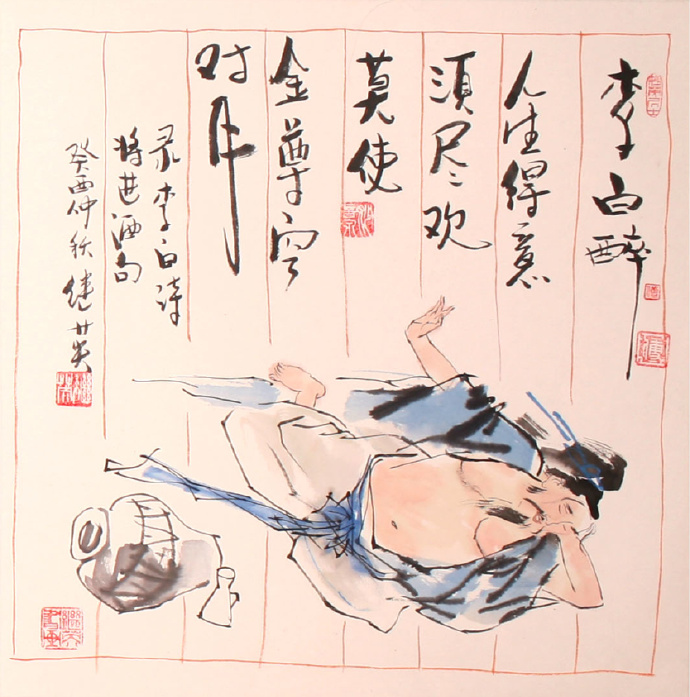 李白醉
人生得意
須尽欢
莫使
金尊空
对月
录李白诗
将进酒句
癸酉仲秋继英